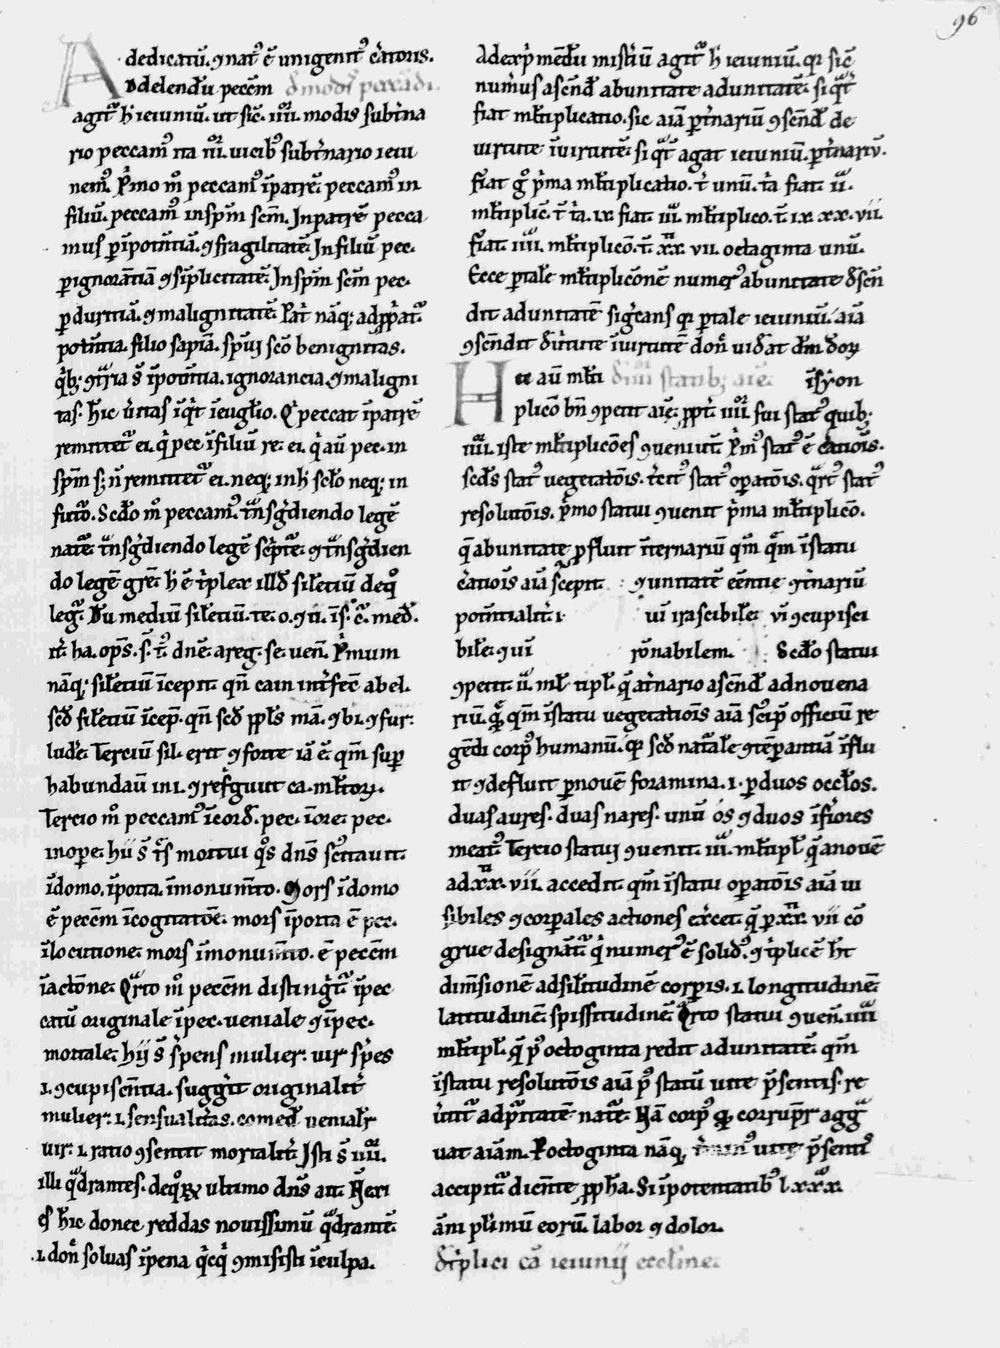 96
dedicatũ. ꝯnatꝰ ẽ unigenitꝰ c̃atoris.
Ad delendũ peccm̃ d̃ modis peccãdi.
agit᷑ h̃ ieiuniũ. ut sic̃. iiii. modis subtna
rio peccamꝰ ita iiii. uicibꝰ subt̃nario ieiu
nemꝰ. P̃mo m̊ peccamꝰ ĩpatrẽ. peccamꝰ in
filiũ. peccamꝰ in sp̃m sc̃m. In patrẽ pecca
mus p̱ ĩpotñtiã. ꝯ fragilitatẽ. In filiũ pec.
p̱ ignorãtiã ꝯ sĩplicitatẽ. In sp̃m sc̃m pec.
p̱ duritiã. ꝯ malignitatẽ. Pat̃ nãq; adp̱p̃at᷑
potñtia. filio sapĩa. sp̃ui sc̃o benignitas.
q̃b; ꝯt̃ria s̃ ĩpotñtia. ignorancia. ꝯ maligni
tas. h̃ic ũitas ĩq̃t ĩeuglio. Q̇ peccat ĩpatrẽ
remittet᷑ ei. q̇ pec ĩfiliũ re. ei. q̇ aũ pec. in
sp̃m s; ñ remittet᷑ ei. neq; in h̃ sclo neq; in
futo. Scdo m̊ peccamꝰ. t̃nsg̃diendo legẽ
natẽ. t̃nsg̃diendo legẽ sc̃ptẽ. ꝯ t̃nsg̃dien
do legẽ gr̃e. h̃ ẽ t̃plex illd̃ silẽtiũ de q̊
leg᷑. Dũ mediũ silẽtiũ. te. o. ꝯ ũ. ĩs. c̃. med̃.
it̃. ha. op̃s. s. t̃. dnẽ. a reg. se. uen̄. P̃mum
nãq; silẽtiũ ĩcepit. qñ cain int̃fec̃ abel.
scd̃ silẽtiũ ĩcep̃. qñ scd̃ pp̃ls mã. ꝯ bi. ꝯ sur:
ludẽ. Terciũ sil. erit ꝯ forte iã ẽ. qm̃ sup̱
habundaũ in i. ꝯ refg̃uit ca. mltoꝝ.
Tercio m̊ peccamꝰ ĩcord̃. pec. ĩore. pec.
inope. hii s̃ t̃s mortui q̊s dñs sc̃itauit.
ĩdomo. ĩporta. ĩmonum̃to. Mors ĩdomo
ẽ peccm̃ ĩcogitatõe. mors ĩporta ẽ pec.
ĩlocutione. mors ĩmonum̃to. ẽ peccm̃
ĩactõne. Qᷓrto m̊ peccm̃ distingit᷑ ĩpec
catũ originale ĩpec. ueniale ꝯ ĩpec.
mortale. hij s̃ s̃pens mulier. uir. s̃pes
.i. ꝯcupiscẽtia. sugg̃it originalit̃
mulier. i. sensualitas. comed̃ uenialr̃
uir. i. ratio ꝯsentit mortalit̃. Isti s̃ iiii.
illi qᷓdrantes. de q̊ꝝ ultimo dñs ait. Neri
s̃ h̃ic donec reddas nouissimũ qᷓdrantẽ.
.i. donc̃ soluas ĩpena q̇cq̇ ꝯmisisti ĩculpa.
Ad exp̃mẽdũ mist̃iũ agit᷑ h̃ ieiuniũ. qꝛ sic̃
num̃us ascñd̃ ab unitate ad unitatẽ. si q̃t̃
fiat mltiplicatio. sic aĩa p̱ t̃nariũ ꝯscñd̃ de
uirtute ĩuirtutẽ. si q̃t̃ agat ieiuniũ. p̱t̃nariũ.
Fiat g̊ p̃ma mltiplicatio. t̃ unũ. t̃a fiat. ii.
mltiplic̃. t̃ t̃a. ix fiat. iii. mltiplico. t̃ ix. xx. vii.
fiat. iiii. mltiplicõ. t̃. xx. vii. octaginta unũ.
Ecce p̱tale mltiplicõnẽ numerꝰ ab unitate d̃scñ
dit ad unitatẽ sig̃cans qꝛ p̱tale ieiuniũ. aĩa
ꝯscñdit d̃ũtute ĩuirtutẽ donc̃ uidat dm̃ doꝝ
Hec aũ mlti d̃ iiii statib; aĩe. ĩsyon
plicõ bñ ꝯpetit aĩe. pp̱t. iiii. sui statꝰ quib;
iiii. iste mltiplicões ꝯueniut̃. P̃mꝰ statꝰ ẽ c̃atiõis.
scd̃s statꝰ uegetatõis. t̃citꝰ statꝰ op̱atõis. qᷓrtꝰ statꝰ
resolutõis. p̃mo statui ꝯuenit p̃ma mltiplicõ.
q̃ ab unitate p̱fluit ĩternariũ qm̃ qm̃ ĩstatu
c̃atiõis aĩa sc̃epit. ꝯ unitatẽ eẽntie ꝯ t̃nariũ
potñtialit̃. i. uĩ irascibilẽ. uĩ ꝯcupisci
bilẽ. ꝯ uĩ rõnabilem. Scdo statui
ꝯpetit. ii. ml tipl. q̃ a t̃nario ascñd̃ ad nouena
riũ. q̃ qm̃ ĩstatu uegetatiõis aĩa scĩp̃ officiũ re
gẽdi corpꝰ humanũ. qꝛ scd̃ naᷓtale ꝯtẽp̱antiã ĩflu
it ꝯ defluit p̱ nouẽ foramina. i. p̱ duos occlos.
duas aures. duas nares. unũ os ꝯ duos ĩfiores
meatꝰ. Tercio statui ꝯuenit. iii. mltipl. q̃ a nouẽ
ad xx. vii. accedit. qm̃ ĩstatu op̱atõis aĩa ui
sibiles ꝯ corp̱ales actiones ex̃cet q̃ p̱ xx. vii cõ
grue designãt᷑ q̇ numerꝰ ẽ solidꝰ. ꝯ t̃plicẽ ht̃
dim̃sionẽ ad silitudinẽ corp̱is. i. longitudinẽ
latitudinẽ. spissitudinẽ. Qᷓrto statui ꝯuen̄. iiii
mltipl. q̃ p̊ octoginta redit ad unitatẽ. qm̃
ĩstatu resolutõis aĩa p̊ statũ uite p̃sentis. re
ũtit᷑ ad p̃itatẽ natẽ. Nã corpꝰ qꝛ corrup̃r agg̃
uat aĩam. P octoginta nãq; uite p̃sentꝰ
accipit᷑ dicẽte pp̱ha. Si ĩpotentatibꝰ lxxx.
ãni plꝰimũ eorũ. labor ꝯ dolor.
d̃ t̃plici cã ieiunij eccl̃ine.